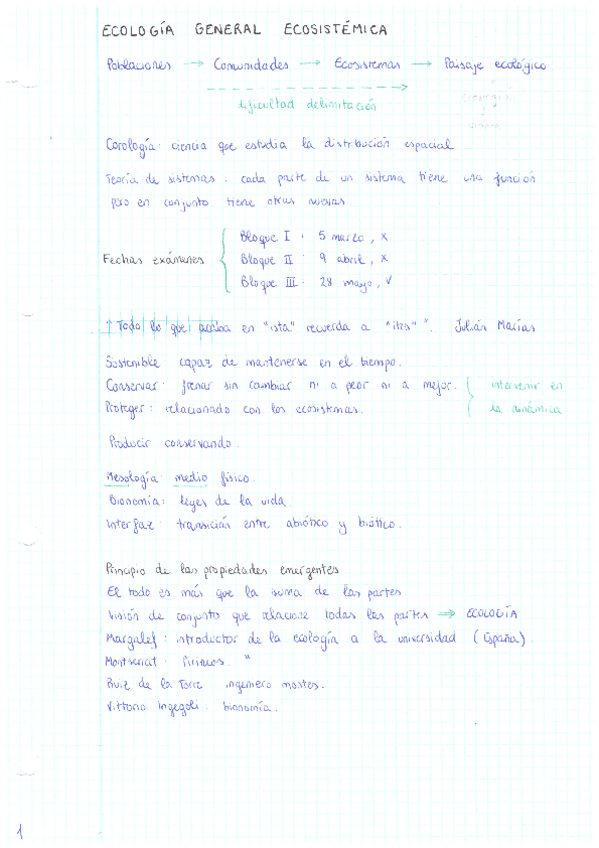 ECOLOGÍA GENERAL ECOSISTÉMICA
Poblaciones → Comunidades → Ecosistemas → Paisaje ecológico
dificultad delimitación
Corología: ciencia que estudia la distribución espacial
Teoría de sistemas: cada parte de un sistema tiene una función
pero en conjunto tiene otras nuevas.
Fechas exámenes
Bloque I: 5 marzo, x
Bloque II: 9 abril, x
Bloque III: 28 mayo, v
Todo lo que acaba en "ista" recuerda a "itis". Julián Marías
Sostenible: capaz de mantenerse en el tiempo.
Conservar: frenar sin cambiar ni a peor ni a mejor. { intervenir en
Proteger: relacionado con los ecosistemas. la dinámica
Producir conservando.
Mesología: medio físico.
Bionomía: leyes de la vida.
Interfaz: transición entre abiótico y biótico.
Principio de las propiedades emergentes
El todo es más que la suma de las partes.
Visión de conjunto que relacione todas las partes → ECOLOGÍA
Margalef: introductor de la ecología a la universidad (España).
Montserrat: Pirineos. "
Ruiz de la Torre: ingeniero montes.
Vittorio Ingegoli: bionomía.
1